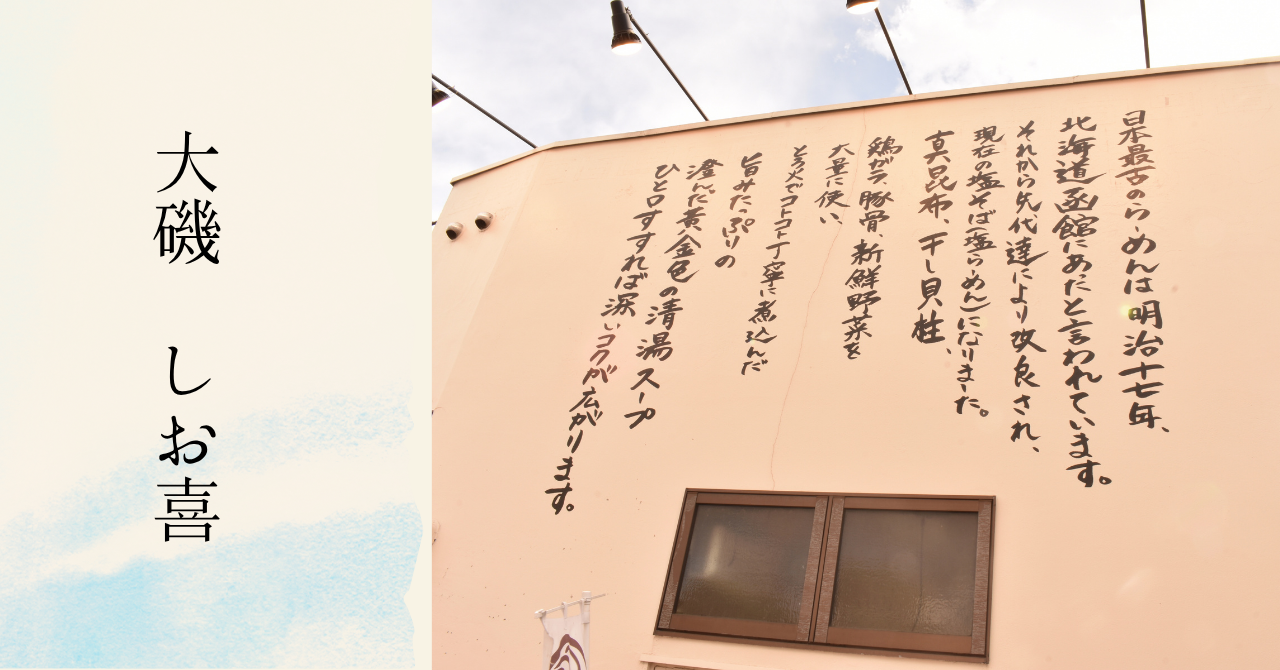 大磯 しお喜
日本最古のらーめんは明治十七年、
北海道函館にあたと言われています。
それから先代達により改良され、
現在の塩そば(塩らーめん)になりました。
真昆布、干し貝柱、
鶏ガラ、豚骨、新鮮野菜を
大量に使い、
とろ火でコトコト丁寧に煮込んだ
旨みたっぷりの
澄んだ黄金色の清湯スープ
ひと口すすれば深いコクが広がります。